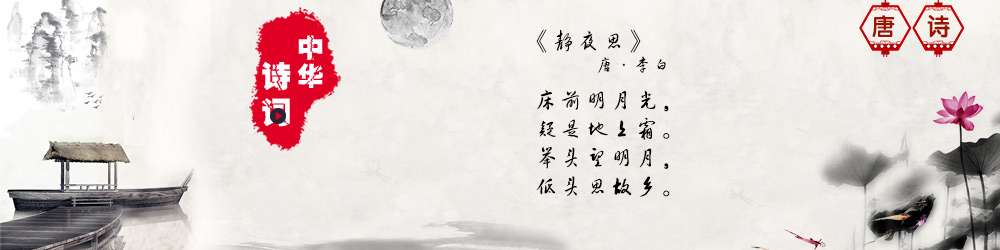 中华
诗词
《静夜思》
唐·李白
床前明月光，
疑是地上霜。
举头望明月，
低头思故乡。
唐诗